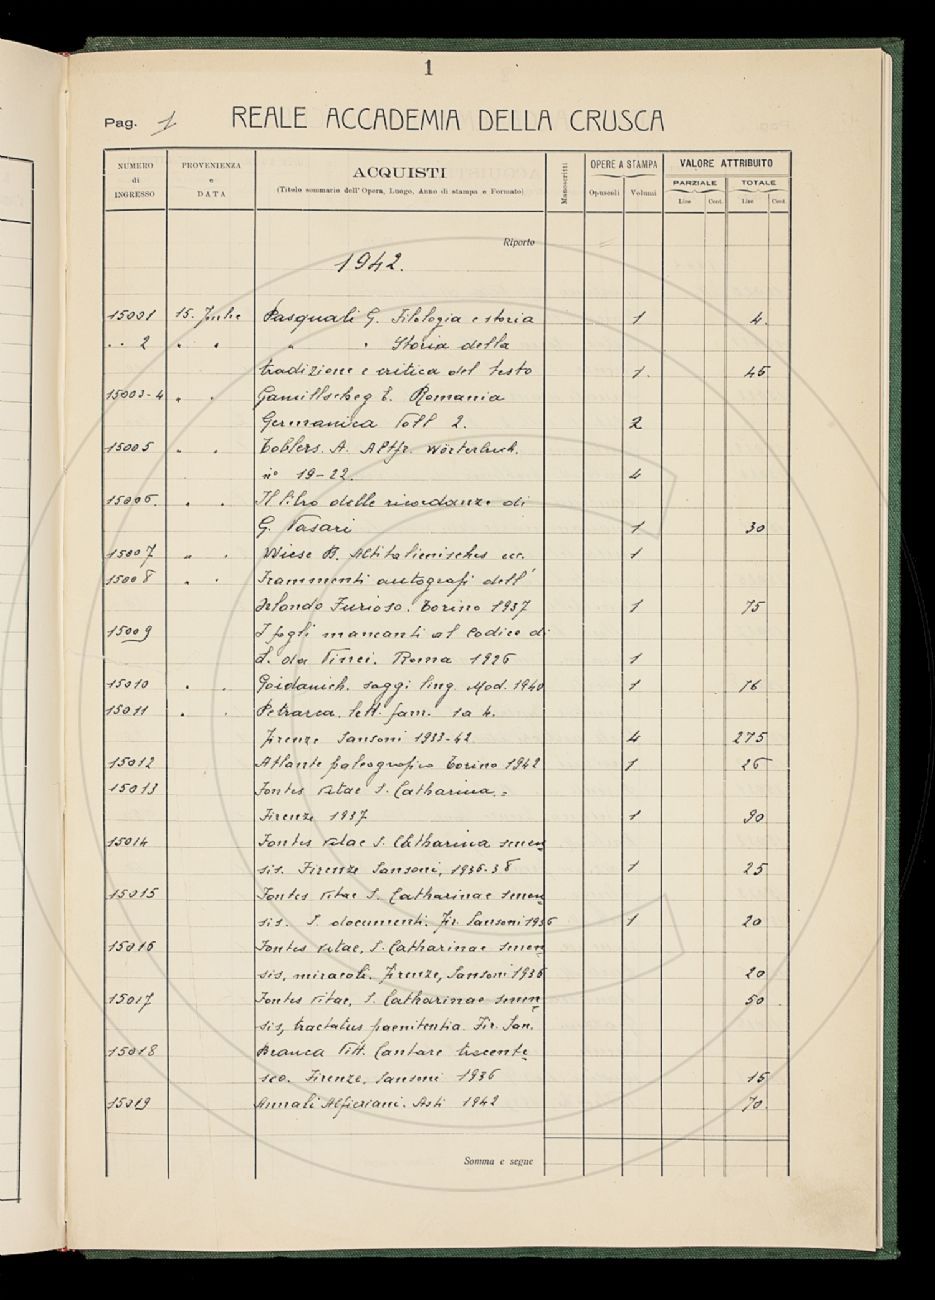 1
Pag. 1 REALE ACCADEMIA DELLA CRUSCA
NUMERO di INGRESSO PROVENIENZA e DATA ACQUISTI (Titolo sommario dell'Opera, Luogo, Anno di stampa e Formato) Manoscritti OPERE A STAMPA Opuscoli Volumi VALORE ATTRIBUITO PARZIALE Lire Cent. TOTALE Lire Cent.
Riporto
1942.
15001 15. Pasquali G. Filologia e storia 1 4.
" " 2 " " " " Storia della
tradizione e critica del testo 1. 45
15003-4 " " Gamillscheg E. Romania
Germanica Voll 2. 2
15005 " " Toblers. A. Altfr. Wörterbuch.
n° 19-22. 4
15006. " " Il libro delle ricordanze di
G. Vasari 1 30
15007 " " Wiese B. Altitalienisches ecc. 1
15008 " " Frammenti autografi dell'
Orlando Furioso. Torino 1937 1 75
15009 I fogli mancanti al Codice di
L. da Vinci. Roma 1926 1
15010 " " Goidanich. saggi ling. Mod. 1940 1 16
15011 " " Petrarca. lett. fam. 1a 4.
Firenze Sansoni 1933-42 4 275
15012 Atlante paleografico Torino 1942 1 25
15013 Fontes vitae S. Catharina. =
Firenze 1937 1 90
15014 Fontes vitae S. Catharina senen
sis. Firenze Sansoni, 1936-38 1 25
15015 Fontes vitae S. Catharinae senen
sis. S. documenti. Fir. Sansoni 1936 1 20
15016 Fontes vitae, S. Catharinae senen
sis, miracoli. Firenze, Sansoni 1936 20
15017 Fontes vitae, S. Catharinae senen 50
sis, tractatus paenitentia. Fir. San.
15018 Branca Vitt. Cantare trecente
sco. Firenze, Sansoni 1936 15
15019 Annali Alfieriani. Asti 1942 70
Somma e segue